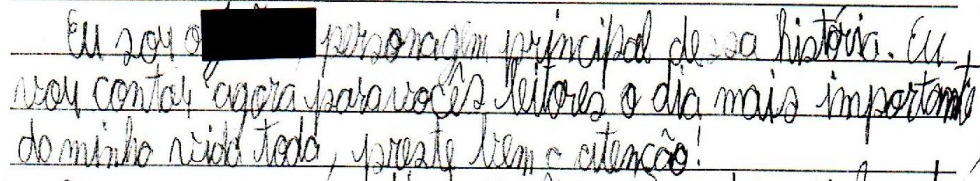 Eu sou o personagem principal dessa história. Eu
vou contar agora para vocês leitores o dia mais importante
da minha vida toda, preste bem a atenção!